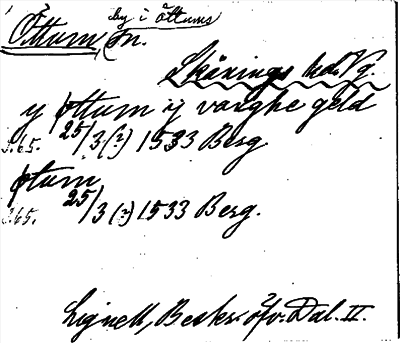 by i Öttums
Öttum, sn.
Skånings hd. Vg.
y øttum y varghe geld
S.65. 25/3 (?) 1533 Berg
øtum
S.65. 25/3 (?) 1533 Berg.
Lignell, Beskr. öfv. Dal. II.